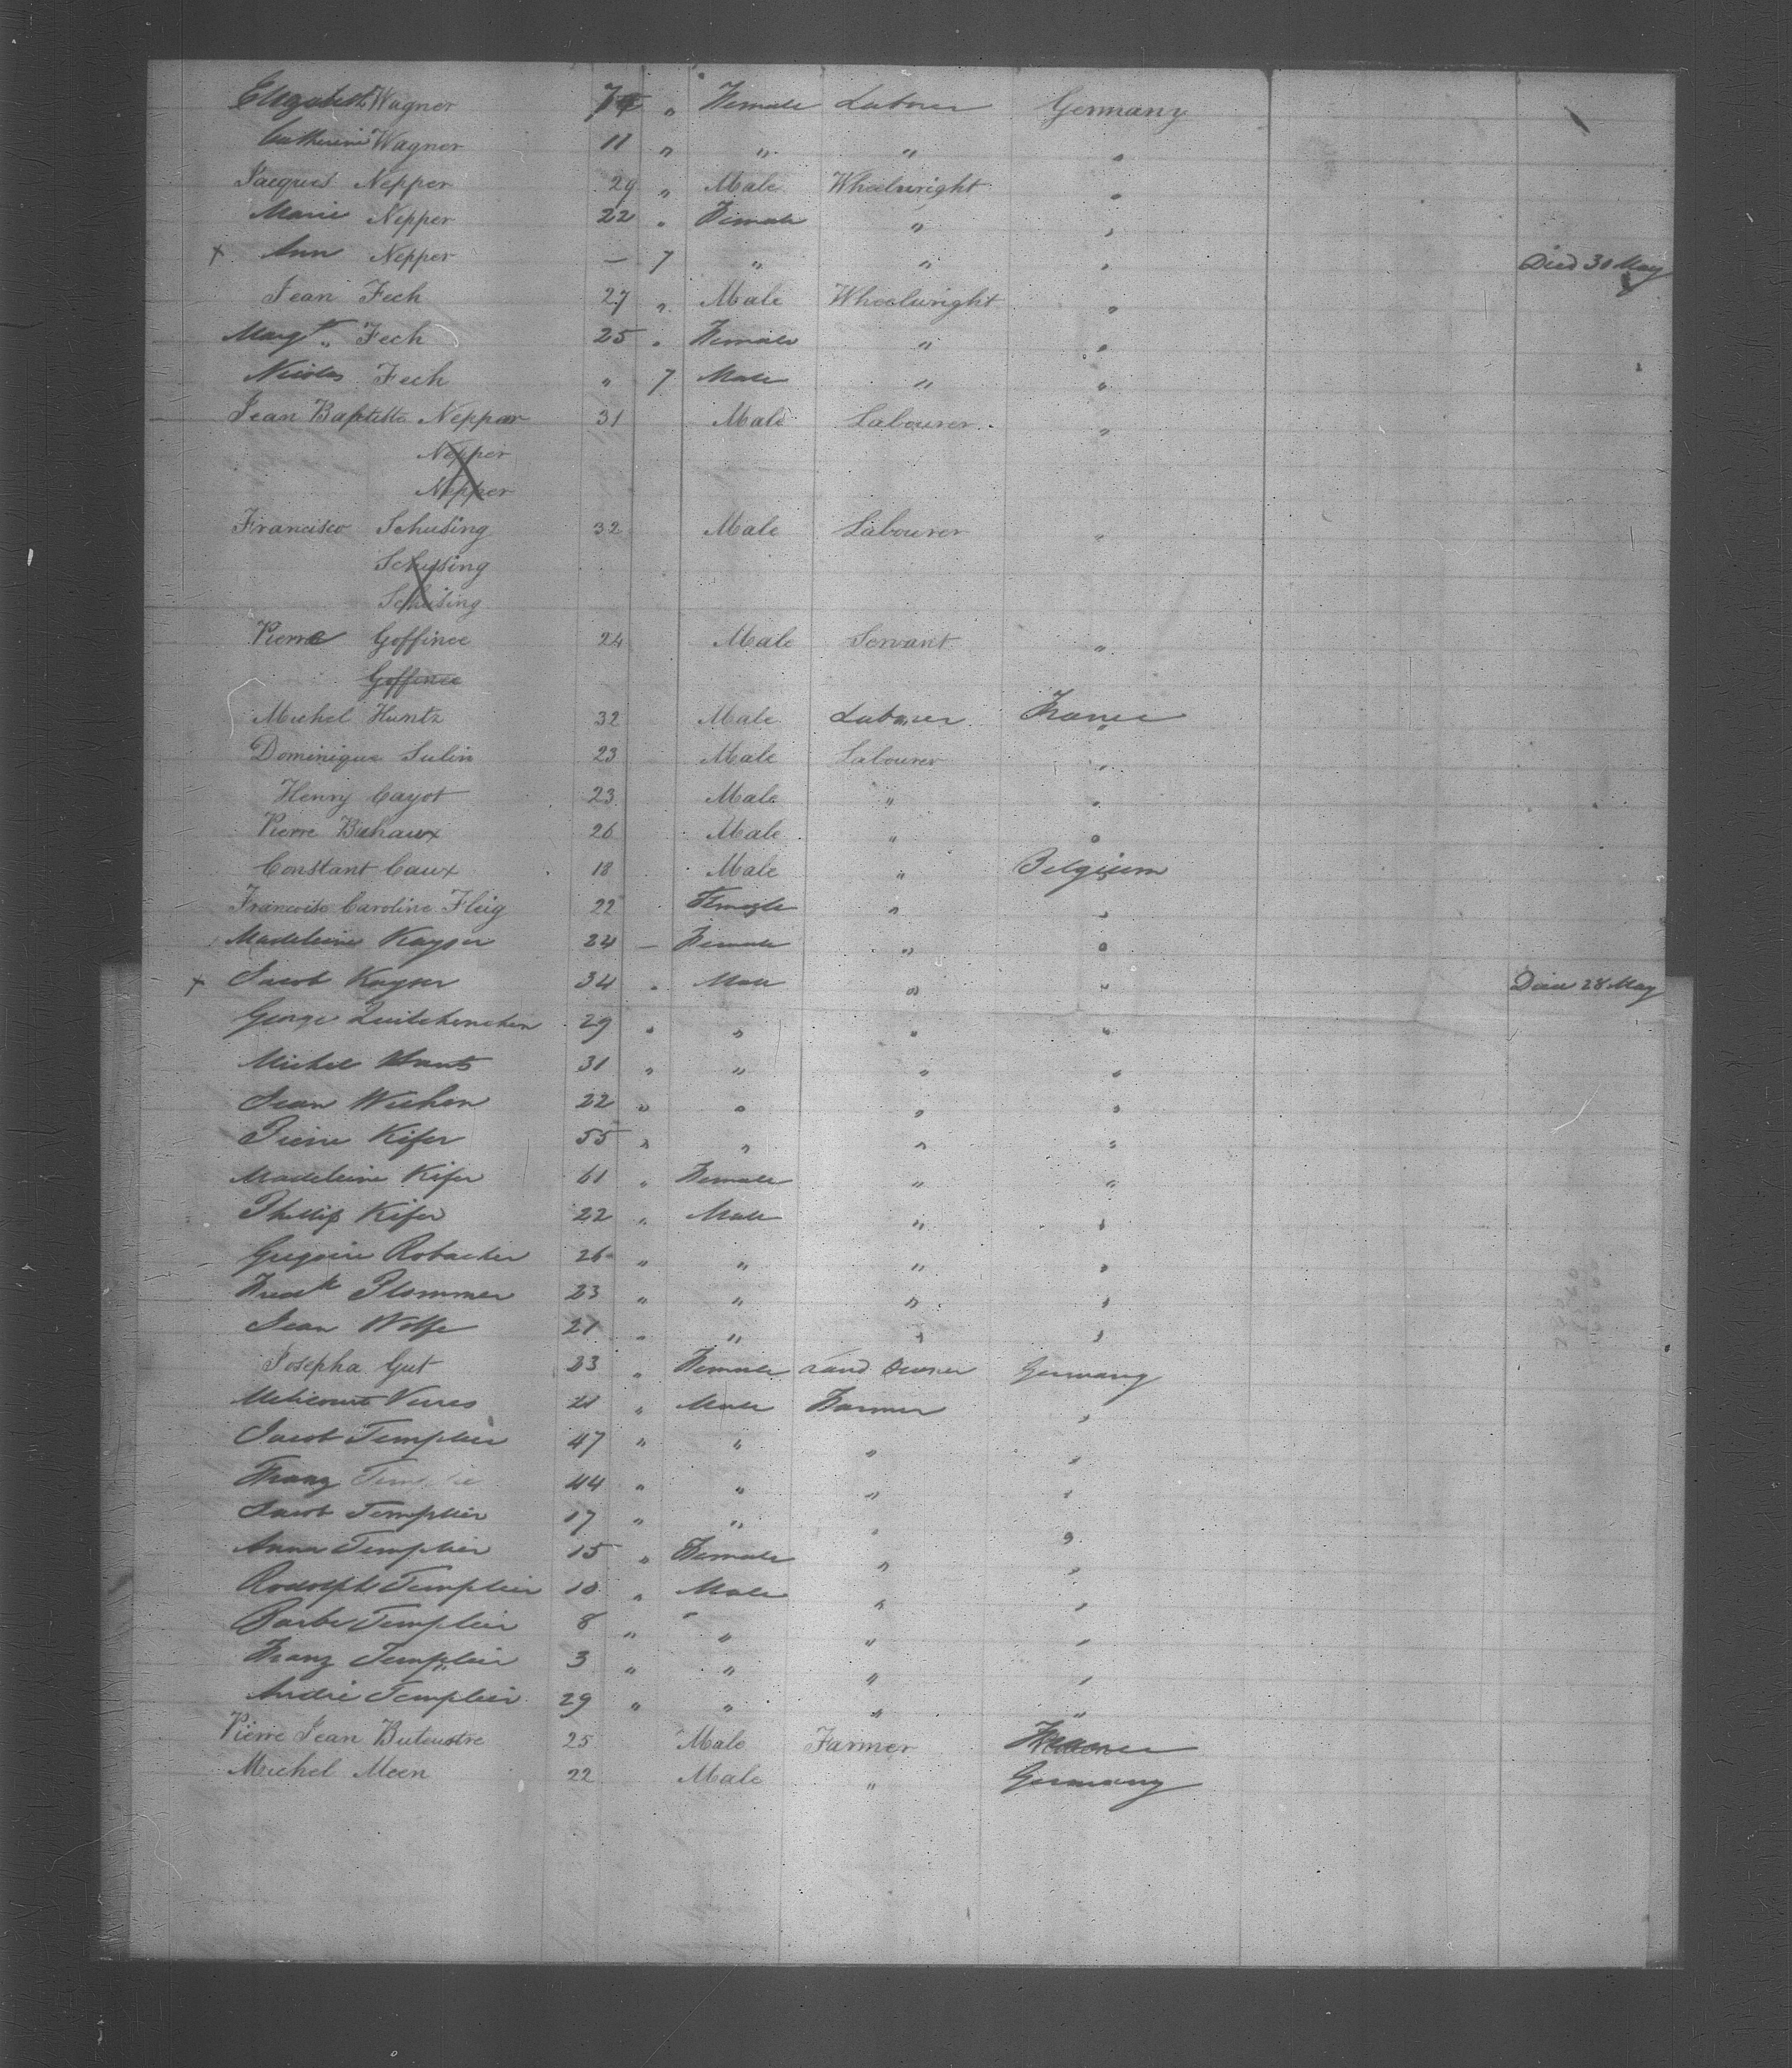 Elizabeth Wagner 〃 Female Labourer Germany
Catherine Wagner 11 〃 〃 〃 〃
Jacques Nepper 29 〃 Male Wheelwright 〃
Marie Nepper 22 〃 Female 〃 〃
x Ann Nepper — 7 〃 〃 〃 Died 30 May
Jean Fech 27 〃 Male Wheelwright 〃
Margt. Fech 25 〃 Female 〃 〃
Nicolas Fech 〃 7 Male 〃 〃
Jean Baptiste Neppar 31 Male Labourer 〃
Nepper
Nepper
Francisco Schusing 32 Male Labourer 〃
Schusing
Schusing
Pierre Goffinee 24 Male Servant 〃
Goffinee
Michel Huntz 32 Male Labourer France
Dominique Sulin 23 Male Labourer 〃
Henry Cayot 23 Male 〃 〃
Pierre Bichaux 26 Male 〃 〃
Constant Caux 18 Male 〃 Belgium
Francoise Caroline Fleig 22 Female 〃 〃
Madeleine Kayser 24 — Female 〃 〃
x Jacob Kayser 34 〃 Male 〃 〃 Died 28 May
George 29 〃 〃 〃 〃
Michel 31 〃 〃 〃 〃
Jean Wichen 22 〃 〃 〃 〃
Pierre Kifer 55 〃 〃 〃 〃
Madeleine Kifer 61 〃 Female 〃 〃
Phillip Kifer 22 〃 Male 〃 〃
Gregoire Robacher 26 〃 〃 〃 〃
Fredk Plommer 23 〃 〃 〃 〃
Jean Wolfe 21 〃 〃 〃 〃
Josepha Gut 23 〃 Female Land Owner Germany
21 〃 Male Farmer 〃
Jacob Templier 47 〃 〃 〃 〃
Franz Templier 44 〃 〃 〃 〃
Jacob Templier 17 〃 〃 〃 〃
Anna Templier 15 〃 Female 〃 〃
Rodolph Templier 10 〃 Male 〃 〃
Barbe Templier 8 〃 〃 〃 〃
Franz Templier 3 〃 〃 〃 〃
Andre Templier 29 〃 〃 〃 〃
Pierre Jean Buteustre 25 Male Farmer France
Michel Meen 22 Male 〃 Germany